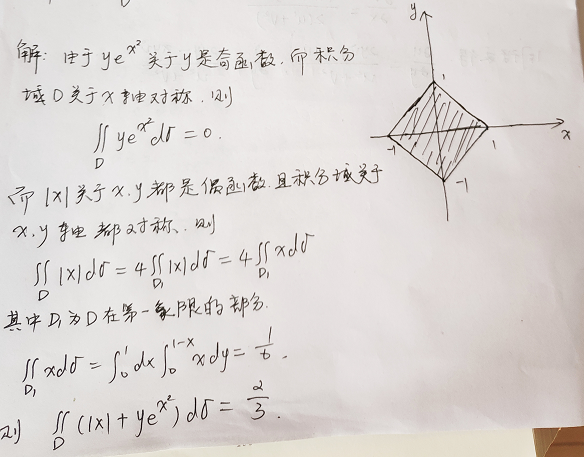 解: 由于 ye^{x²} 关于y是奇函数, 而积分
域D关于x轴对称, 则
∬_D ye^{x²}dσ = 0.
而 |x| 关于 x, y 都是偶函数, 且积分域关于
x, y 轴都对称, 则
∬_D |x|dσ = 4∬_{D₁} |x|dσ = 4∬_{D₁} xdσ
其中 D₁ 为 D 在第一象限的部分.
∬_{D₁} xdσ = ∫₀¹ dx ∫₀^{1-x} xdy = 1/6.
则 ∬_D (|x| + ye^{x²}) dσ = 2/3.
y
1
-1
1
x
-1